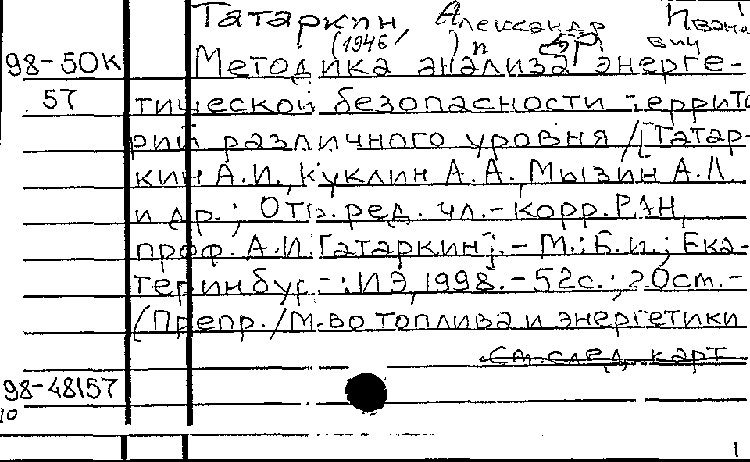 Татаркин, Александр Ивано
(1946/ ) п вич
98-50К Методика анализа энерге-
57 тической безопасности террито
рий различного уровня /[Татар-
кин А.И., Куклин А.А., Мызин А.Л.
и др.; Отв. ред. чл.-корр. РАН,
проф. А.И. Татаркин]. - М.: Б.и.; Ека-
теринбург: ИЭ, 1998. - 52с.; 20см. -
(Препр./М-во топлива и энергетики
См. след. карт
98-48157
10
1